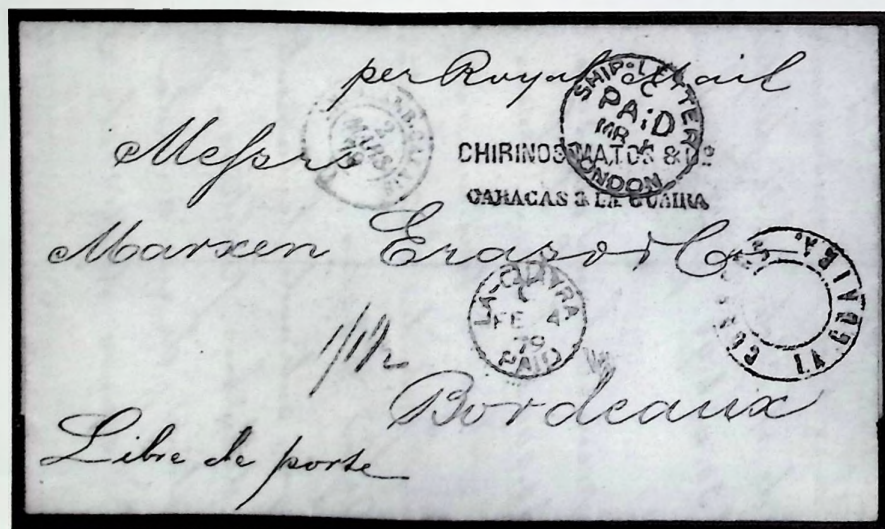 per Royal Mail
SHIP-LETTER
C
PAID
MR
LONDON
2
MARS
79
Messrs
CHIRINOS MATOS & Cº
CARACAS & LA GUAIRA
Marxen Eraso & Co
LA-GUAYRA
C
FE 4
79
PAID
LA GUAIRA
1/1½
Bordeaux
Libre de porte